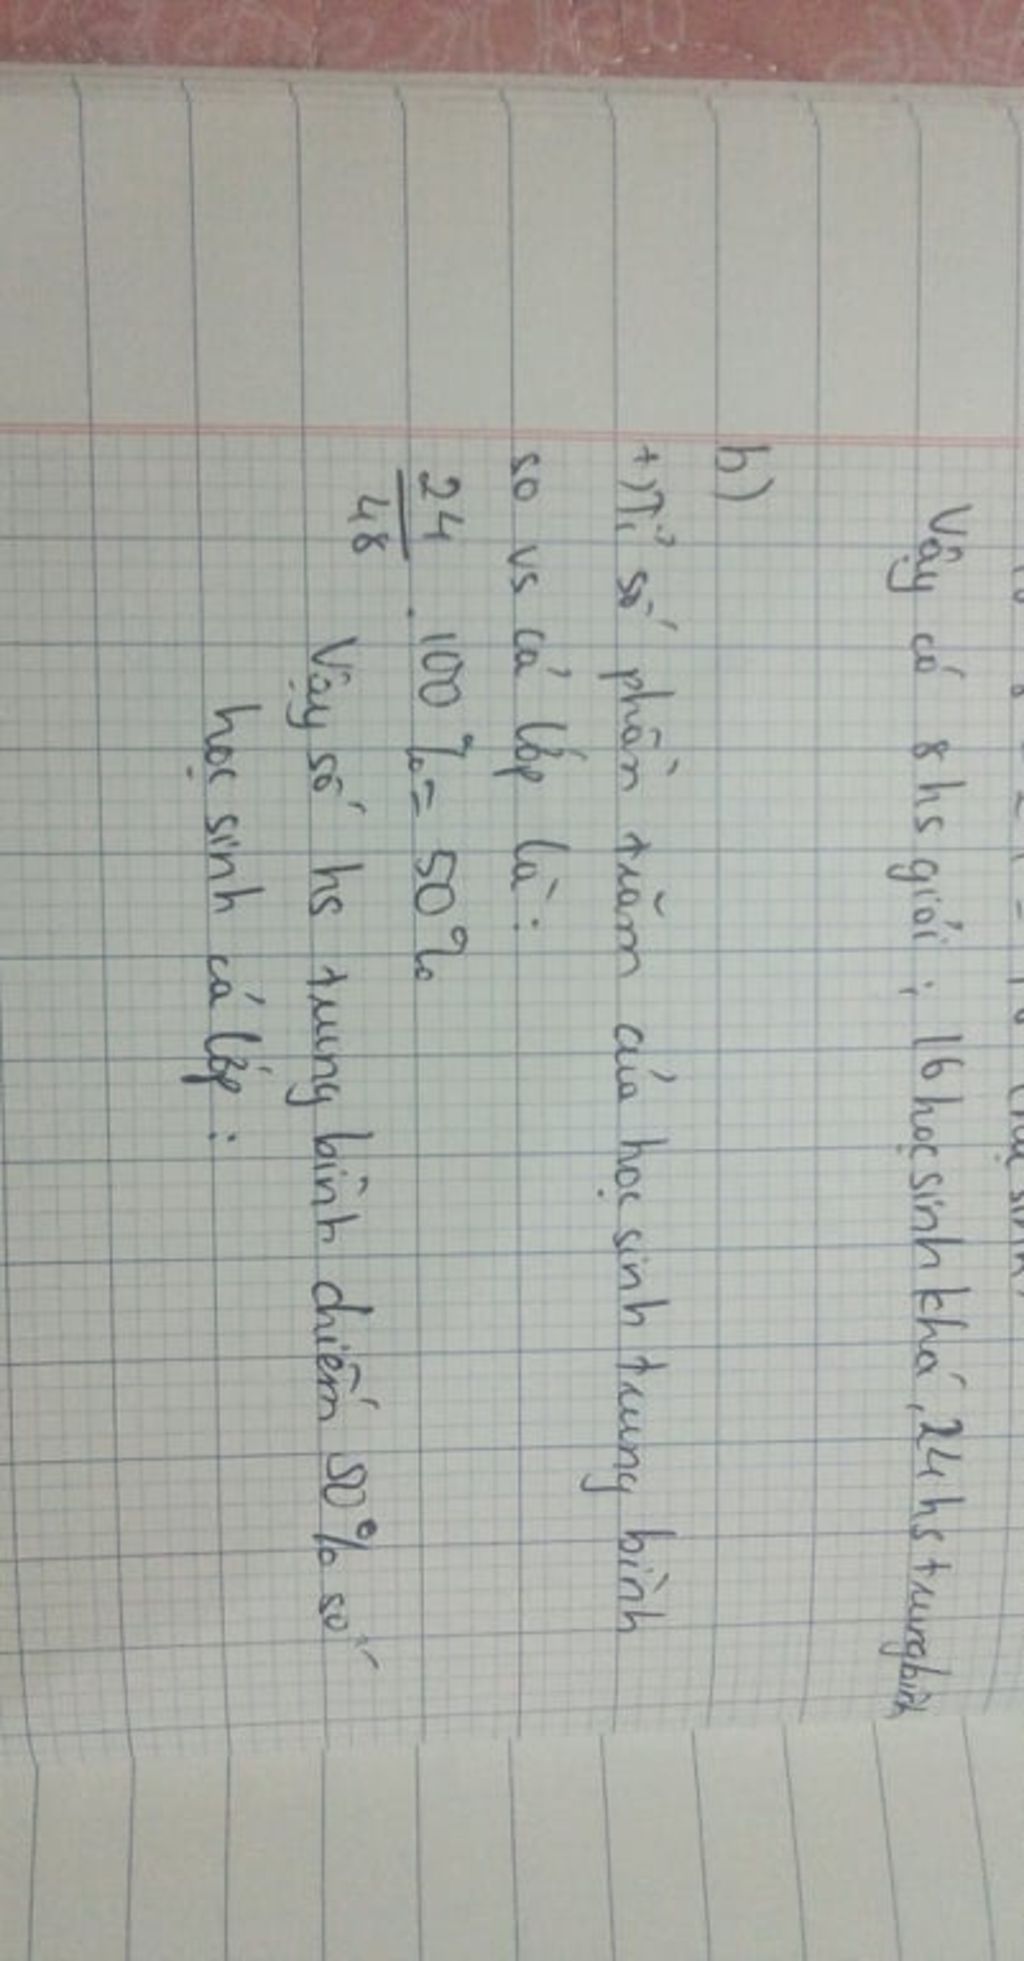 Vậy có 8 hs giỏi ; 16 học sinh khá, 24 hs trung bình
b)
+) Tỉ số phần trăm của học sinh trung bình
so vs cả lớp là :
24/48 . 100 % = 50 %
Vậy số hs trung bình chiếm 50 % số
học sinh cả lớp :